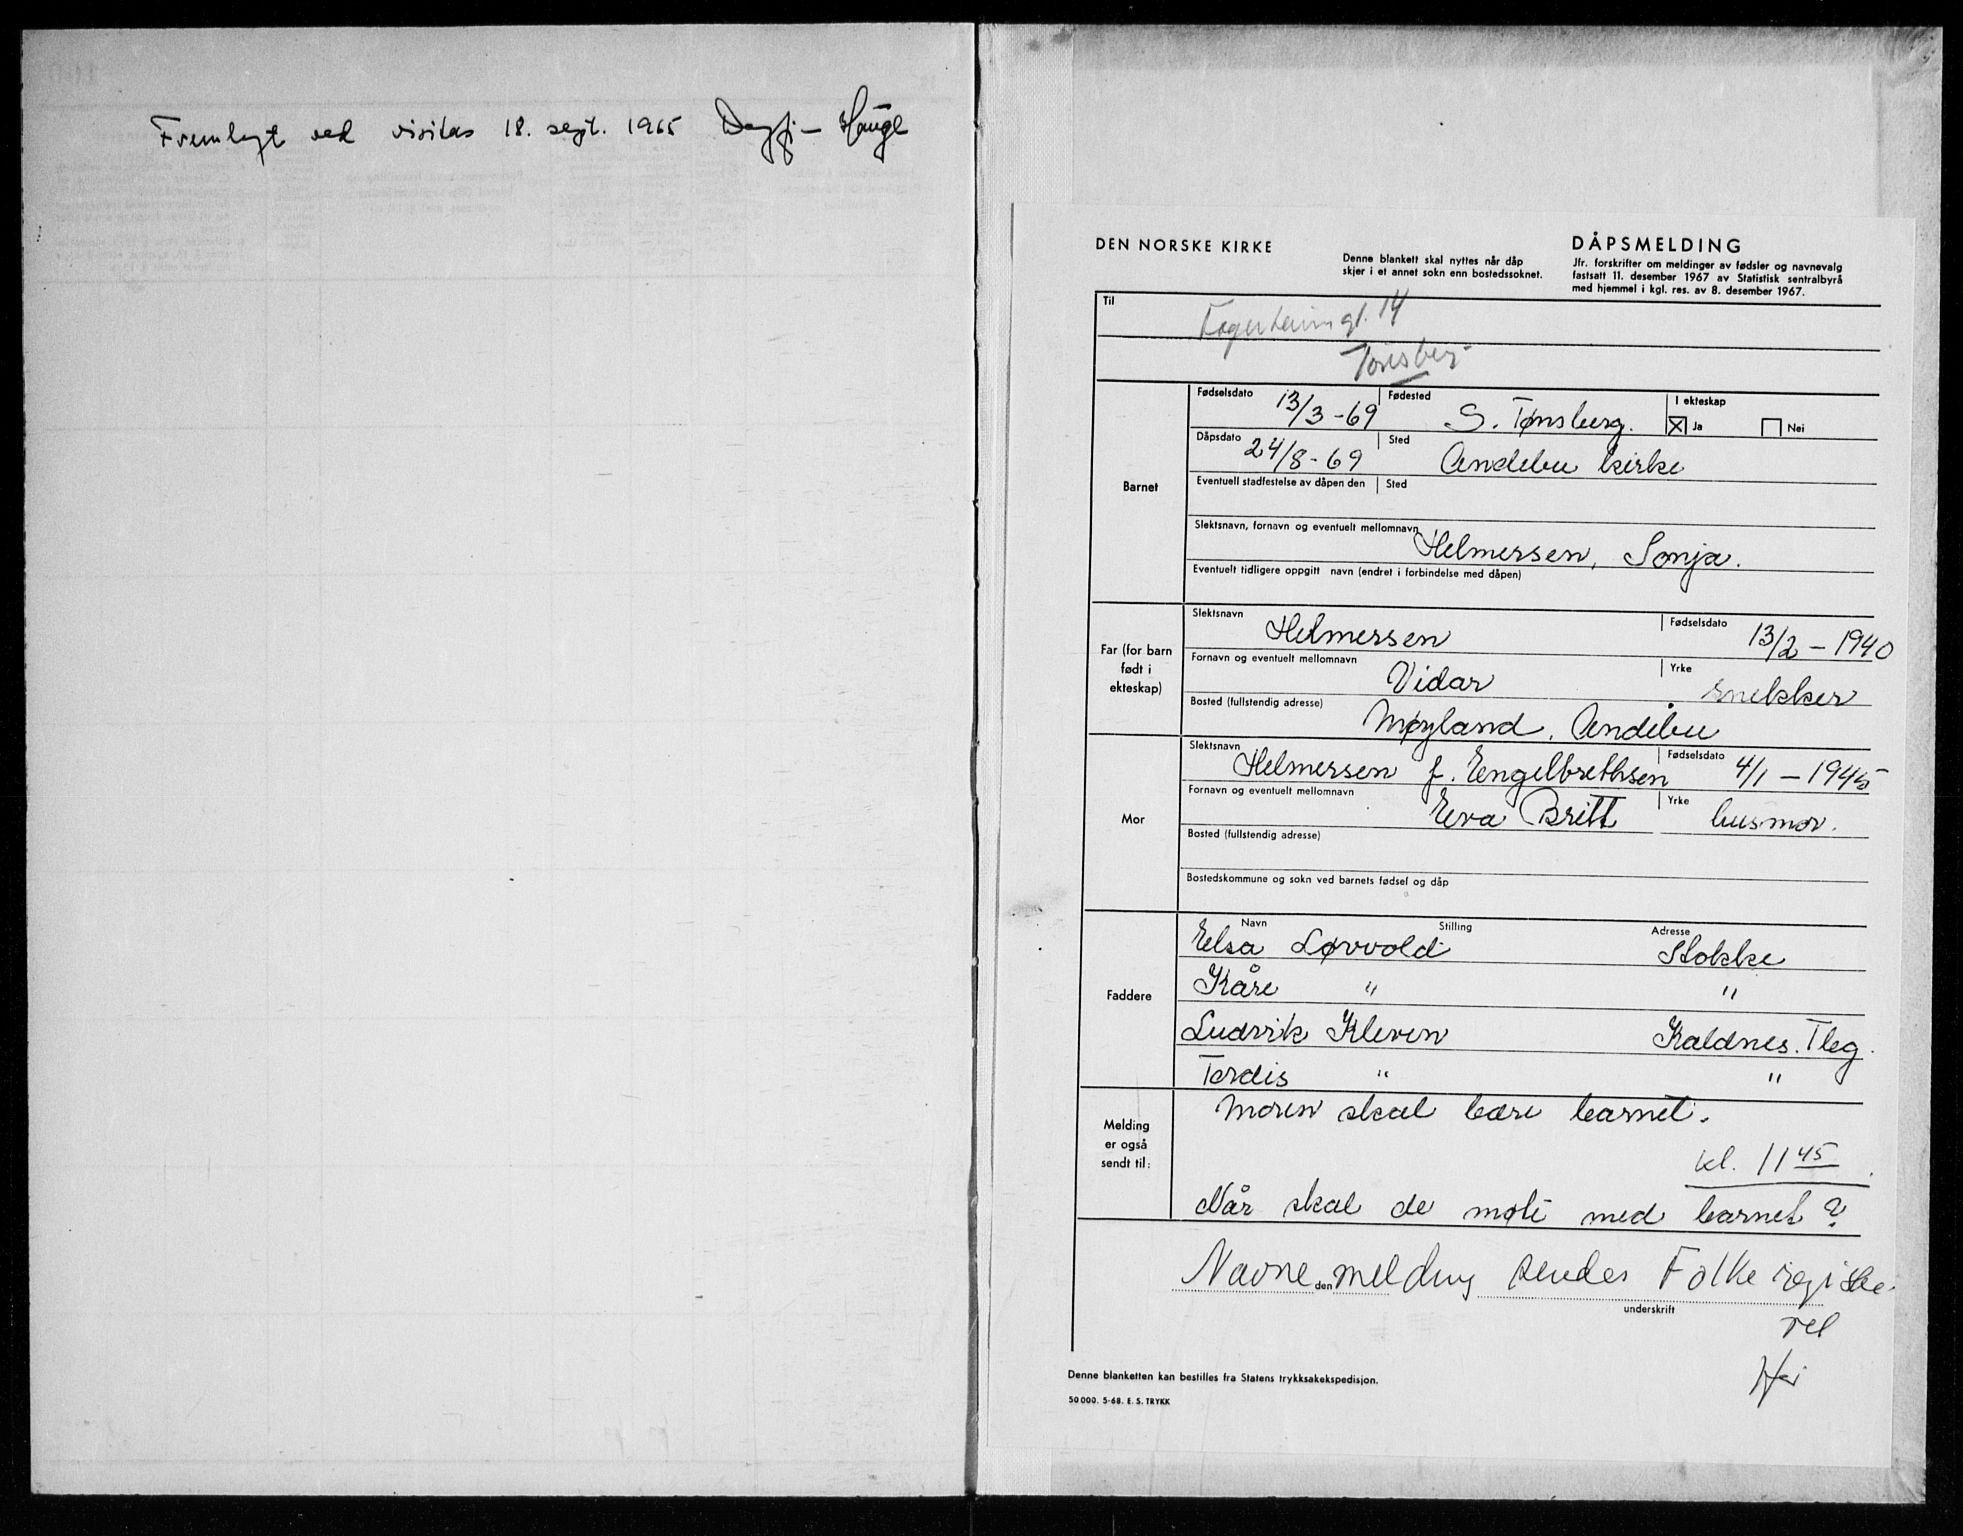 Fremlagt ved visitas 18. sept. 1965 Dagf— Hauge
DEN NORSKE KIRKE
Denne blankett skal nyttes når dåp
skjer i et annet sokn enn bostedssoknet.
DÅPSMELDING
Jfr. forskrifter om meldinger av fødsler og navnevalg
fastsatt 11. desember 1967 av Statistisk sentralbyrå
med hjemmel i kgl. res. av 8. desember 1967.
Til
Fagerheimgt. 14
Tønsberg
Barnet
Fødselsdato 13/3-69 Fødested S. Tønsberg. I ekteskap
Ja Nei
Dåpsdato 24/8-69 Sted Andebu kirke
Eventuell stadfestelse av dåpen den Sted
Slektsnavn, fornavn og eventuelt mellomnavn
Helmersen, Sonja.
Eventuelt tidligere oppgitt navn (endret i forbindelse med dåpen)
Far (for barn
født i
ekteskap)
Slektsnavn Helmersen Fødselsdato 13/2 - 1940
Fornavn og eventuelt mellomnavn Vidar Yrke snekker
Bosted (fullstendig adresse) Møyland, Andebu
Mor
Slektsnavn Helmersen f. Engelbrethsen Fødselsdato 4/1 - 1945
Fornavn og eventuelt mellomnavn Eva Britt Yrke husmor.
Bosted (fullstendig adresse)
Bostedskommune og sokn ved barnets fødsel og dåp
Faddere
Navn Stilling Adresse
Elsa Løvvold Stokke
Kåre " "
Ludvik Kleven Kaldnes. Tbg.
Tordis " "
Melding
er også
sendt til:
Moren skal bære barnet.
kl. 11 45
Når skal de møte med barnet?
Navne den melding sendes Folkeregiste-
underskrift
ret
Denne blanketten kan bestilles fra Statens trykksakekspedisjon.
50 000. 5-68. E. S. TRYKK